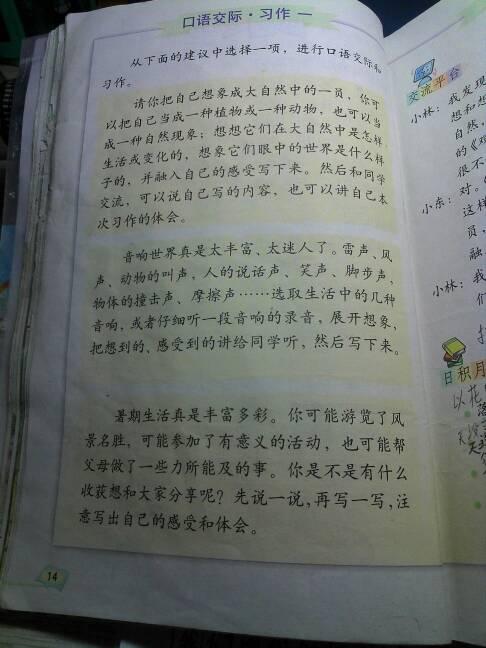 口语交际·习作 一
从下面的建议中选择一项，进行口语交际和
习作。
请你把自己想象成大自然中的一员，你可
以把自己当成一种植物或一种动物，也可以当
成一种自然现象；想想它们在大自然中是怎样
生活或变化的，想象它们眼中的世界是什么样
子的，并融入自己的感受写下来。然后和同学
交流，可以说自己写的内容，也可以讲自己本
次习作的体会。
音响世界真是太丰富、太迷人了。雷声、风
声、动物的叫声，人的说话声、笑声、脚步声，
物体的撞击声、摩擦声……选取生活中的几种
音响，或者仔细听一段音响的录音，展开想象，
把想到的、感受到的讲给同学听，然后写下来。
暑期生活真是丰富多彩。你可能游览了风
景名胜，可能参加了有意义的活动，也可能帮
父母做了一些力所能及的事。你是不是有什么
收获想和大家分享呢？先说一说，再写一写，注
意写出自己的感受和体会。
14
交流平台
小林：我发现
想和想
自然，
的《
很不
小东：对。《
这样
员，
融
小林：我
们
日积月
以花